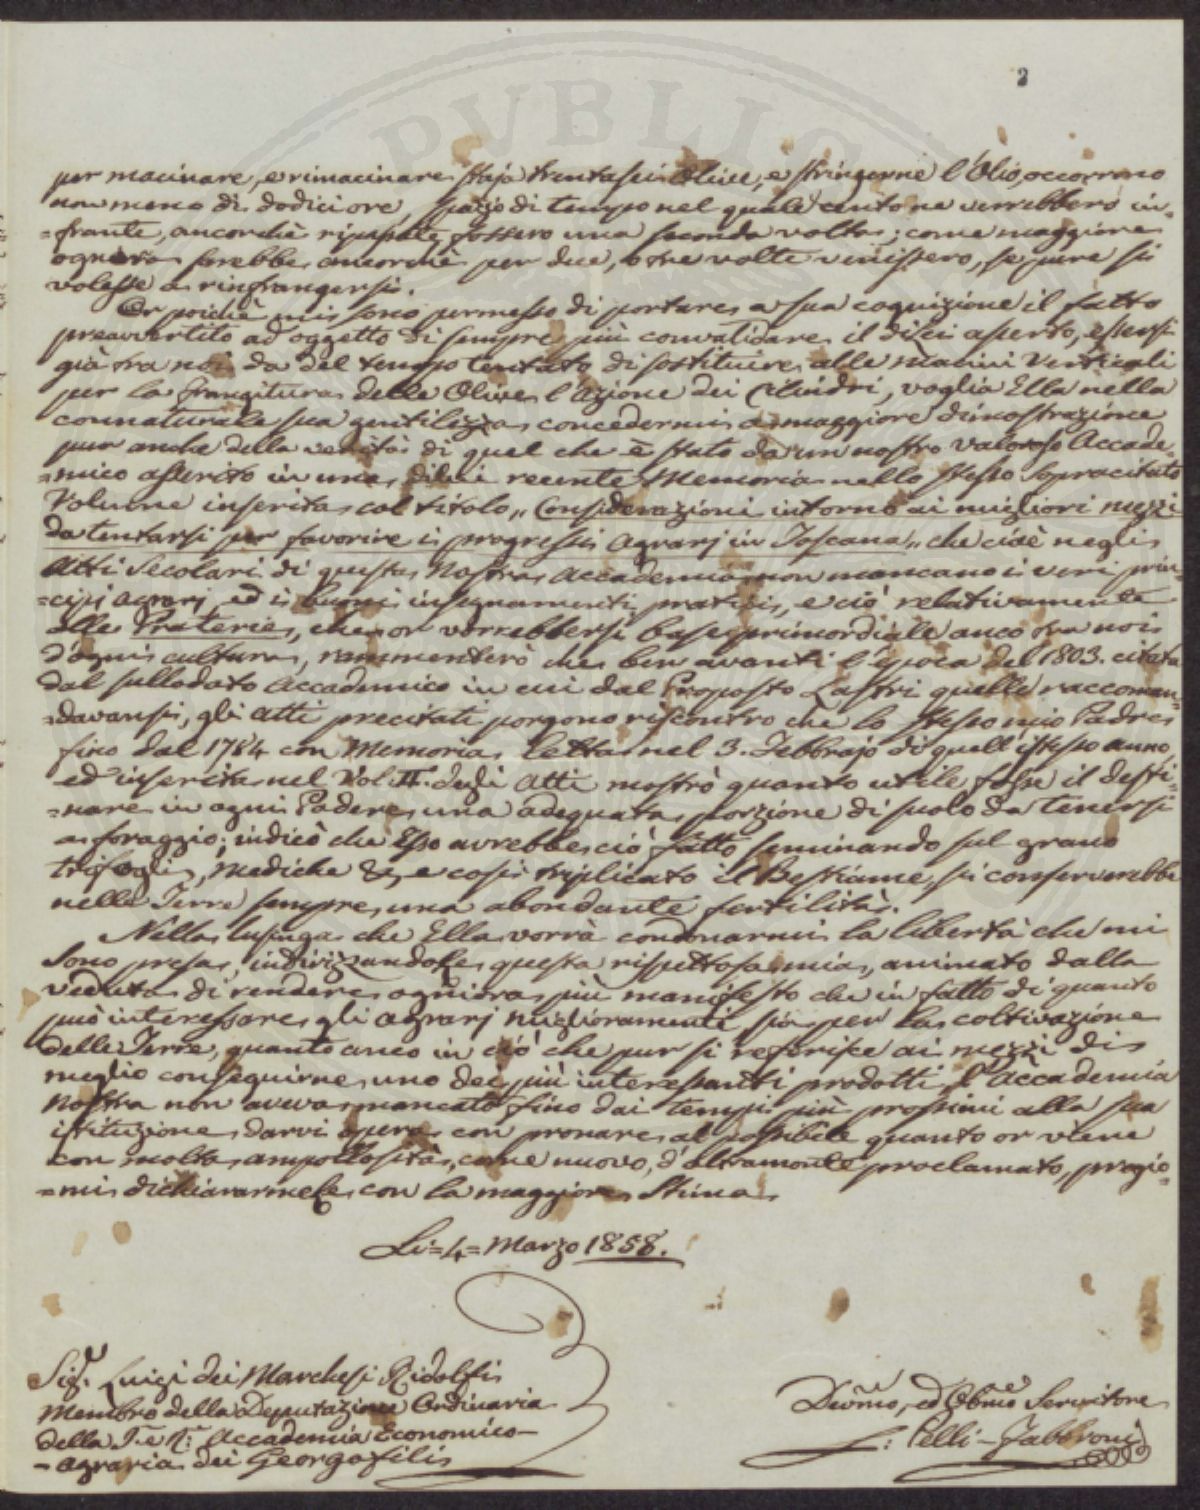 2
per macinare, e rimacinare staja trentasei Olive, e stringerne l'Olio, occorrono
non meno di dodici ore, spazio di tempo nel quale cento ne verrebbero in=
=frante, ancorchè ripassate fossero una seconda volta; come maggiore
ognora sarebbe ancorchè per due, o tre volte venissero, se pure si
volesse a rinfrangersi.
Or poichè mi sono permesso di portare a sua cognizione il fatto
preavvertito ad oggetto di sempre più convalidare il di lei asserto, essersi
già tra noi da del tempo tentato di sostituire alle macini verticali
per la frangitura delle Olive l'azione dei Cilindri, voglia Ella nella
connaturale sua gentilezza concedermi a maggiore dimostrazione
pur anche della verità di quel che è stato da un nostro valoroso Accade=
=mico asserito in una di lui recente Memoria nello stesso sopracitato
Volume inserita col titolo „ Considerazioni intorno ai migliori mezzi
da tentarsi per favorire i progressi agrarj in Toscana „ che cioè negli
Atti Secolari di questa Nostra Accademia non mancano i veri prin=
=cipj agrarj ed i buoni insegnamenti pratici, e ciò relativamente
alle Praterie, che or vorrebbersi base primordiale anco tra noi
d'ogni cultura, rammenterò che ben avanti l'epoca del 1803. citata
dal sullodato Accademico in cui dal Proposto Lastri quelle raccoman=
=davansi, gli Atti precitati porgono riscontro che lo stesso mio Padre
fino dal 1784 con Memoria letta nel 3. Febbrajo di quell'istesso anno,
ed inserita nel Vol. II. degli Atti mostrò quanto utile fosse il desti=
=nare in ogni Podere una adequata porzione di suolo da tenersi
a foraggio; indicò che Esso avrebbe ciò fatto seminando sul grano
trifogli, mediche &, e così triplicato il Bestiame, si conserverebbe
nelle Terre sempre una abondante fertilità.
Nella lusinga che Ella vorrà condonarmi la libertà che mi
sono presa, indirizzandole questa rispettosa mia, animato dalla
veduta di rendere ognora più manifesto che in fatto di quanto
può interessare gli agrarj miglioramenti sia per la coltivazione
delle Terre, quanto anco in ciò che pur si referisce ai mezzi di
meglio conseguirne uno dei più interessanti prodotti, l'Accademia
Nostra non aveva mancato fino dai tempi più prossimi alla sua
istituzione darvi opera con pronare al possibile quanto or viene
con molta ampollosità, come nuovo, d'oltramonte proclamato, pregio=
=mi dichiararmele con la maggiore Stima
Li = 4 = Marzo 1858.
Sigr. Luigi dei Marchesi Ridolfi
Membro della Deputazione Ordinaria
della I. e R. Accademia Economico-
-agraria dei Georgofili
Devmo, ed Obmo Servitore
L: Pelli-Fabbroni